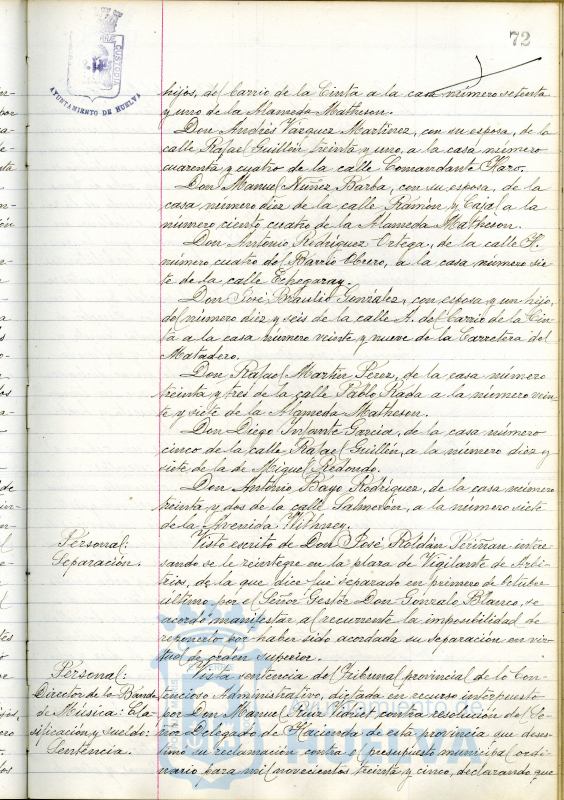 72
CUSTODIA
AYUNTAMIENTO DE HUELVA
hijos, del Carrio de la Cinta a la casa número setenta
y uno de la Alameda Matheson.
Don Andrés Vázquez Martienez, con su esposa, de la
calle Rafael Guillén treinta y uno, a la casa número
cuarenta y cuatro de la calle Comandante Haro.
Don Manuel Núñez Barba, con su esposa, de la
casa número diez de la calle Ramón y Cajal a la
número ciento cuatro de la Alameda Matheson.
Don Antonio Rodríguez Ortega, de la calle H.
número cuatro del Barrio Obrero, a la casa número sie-
te de la calle Echegaray.
Don José Braulio González, con esposa y un hijo,
del número diez y seis de la calle A. del Carrio de la Cin-
ta a la casa número veinte y nueve de la Carretera del
Matadero.
Don Rafael Martín Pérez, de la casa número
treinta y tres de la calle Pablo Rada a la número vein-
te y siete de la Alameda Matheson.
Don Diego Infante García, de la casa número
cinco de la calle Rafael Guillén, a la número diez y
siete de la de Miguel Redondo.
Don Antonio Bayo Rodríguez, de la casa número
treinta y dos de la calle Salmerón, a la número siete
de la Avenida Withney.
Personal:
Separación.
Visto escrito de Don José Roldán Periñan intere-
sando se le reintegre en la plaza de Vigilante de Arbi-
trios, de la que dice fué separado en primero de Octubre
último por el Señor Gestor Don Gonzalo Blanco, se
acordó manifestar al recurrente la imposibilidad de
reponerlo por haber sido acordada su separación en vir-
tud de orden superior.
Personal:
Director de la Banda
de Música: Cla-
sificación y sueldo:
Sentencia.
Vista sentencia del Tribunal provincial de lo Con-
tencioso Administrativo, dictada en recurso interpuesto
por Don Manuel Ruiz contra resolución del Se-
ñor Delegado de Hacienda de esta provincia que deses-
timó su reclamación contra el presupuesto municipal ordi-
nario para mil novecientos treinta y cinco, declarando que
Ayuntamiento de
HUELVA